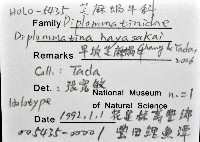 HOLO-5435 芝麻蝸牛科
Family Diplommatinidae
Diplommatina hayasakai
Remarks 早坂芝麻蝸牛 Chang & Tada, 2006
Coll.: Tada
Det.: 張寬敏 National Museum n.=1
Holotype of Natural Science
Date 1992.1.1 花蓮縣萬榮鄉
005435-00001